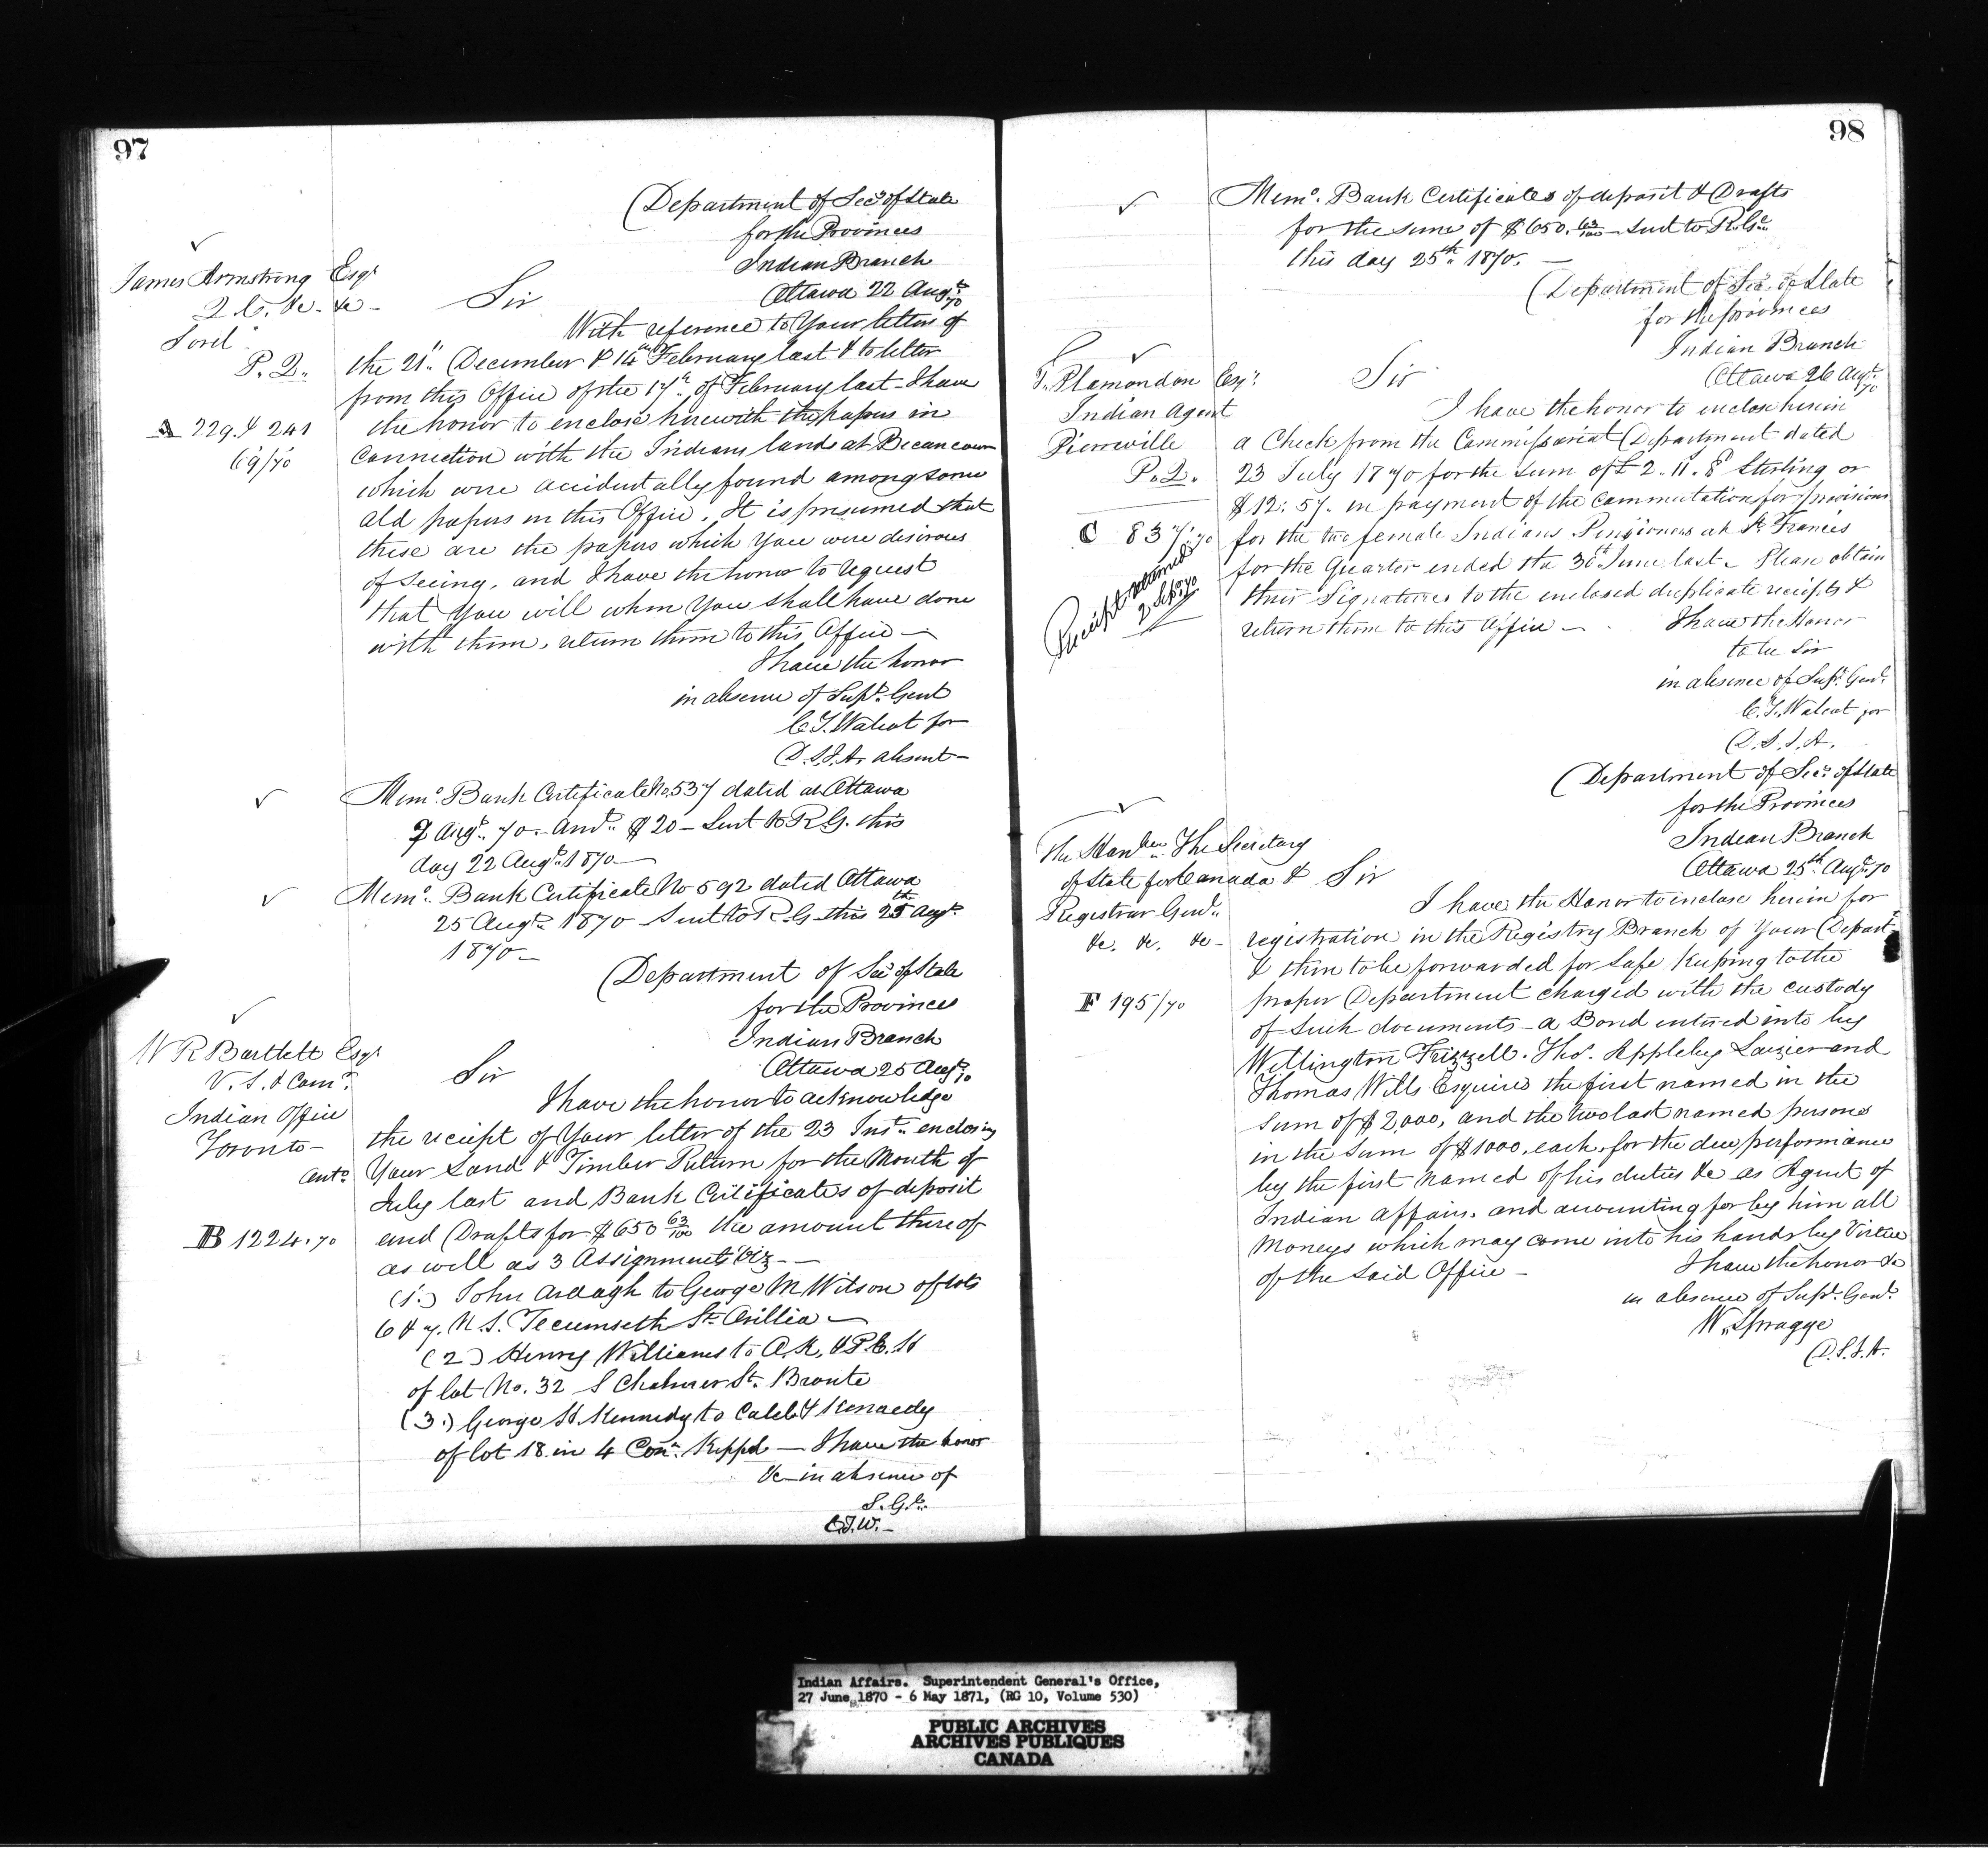 97
Department of Secy of State
for the Provinces
Indian Branch
Ottawa 22 Augt 70
James Armstrong Esqr
Q. C. &c. &c -
Sorel
P. Q.
A 229 & 241
69/70
Sir
With reference to Your letters of
the 21st December & 14th February last & to letter
from this Office of the 17th of February last - I have
the honor to enclose herewith the papers in
connection with the Indians lands at Becancour
which were accidentally found among some
old papers in this Office. It is presumed that
these are the papers which You were desirous
of seeing, and I have the honor to request
that You will when You shall have done
with them, return them to this Office -
I have the honor
in absence of Supt. Genl
C.T. Walcot for
D.S.I.A. absent -
Memo. Bank Certificate No. 537 dated at Ottawa
Augt. 70 - $20 - Sent to R.G. this
day 22 Augt. 1870 -
Memo. Bank Certificate No 592 dated Ottawa
25 Augt. 1870 - Sent to R.G. this 25th Augt.
1870 -
Department of Secy of State
for the Provinces
Indian Branch
Ottawa 25 Augt 70
W R Bartlett Esqr
V. S. & Comr.
Indian Office
Toronto -
Onto.
B 1224.70
Sir
I have the honor to acknowledge
the reciept of Your letter of the 23 Inst. enclosing
Your Land & Timber Return for the Month of
July last and Bank Certificates of deposit
and Drafts for $650 63/100 the amount thereof
as well as 3 Assignments Viz - -
(1.) John Ardagh to George M Wilson of lots
6 & 7. N. S. Tecumseth St. Orillia -
(2) Henry Williams to A.K. & P.C. K
of lot No. 32 S Chalmer St. Bronte
(3.) George H. Kennedy to Caleb Kennedy
of lot 18 in 4 Con. Keppel - I have the honor
&c - in absence of
S. Gl.
C.T.W. -
98
Memo. Bank Certificates of deposit & Drafts
for the sum of $650. 63/100 - Sent to R. Gl.
this day 25th. 1870. -
Department of Secy. of State
for the provinces
Indian Branch
Ottawa 26 Augt. 70
Plamondon Esqr.
Indian Agent
Pierreville
P. Q.
C 837.70
Receipt returned
2 Sept. 70
Sir
I have the honor to enclose herein
a Check from the Commissariat Department dated
23 July 1870 for the sum of £2. 11. 8 Sterling or
$12. 57. in payment of the commutation for provisions
for the two female Indians Pensioners at St. Francis
for the Quarter ended the 30th June last - Please obtain
their Signatures to the enclosed duplicate reciepts &
return them to this Office -
I have the Honor
to be Sir
in absence of Supt. Genl.
C. T. Walcot for
D. S. I. A.
Department of Secy. of State
for the Provinces
Indian Branch
Ottawa 25th Augt. 70
The Honble The Secretary
of State for Canada &
Registrar Genl.
&c. &c. &c -
F 195/70
Sir
I have the Honor to enclose herein for
registration in the Registry Branch of Your Depart-
& then to be forwarded for Safe Keeping to the
proper Department charged with the custody
of such documents - a Bond entered into by
Wellington Frizzell. Thos. Appleby Lazier and
Thomas Wills Esquires the first named in the
sum of $2,000, and the two last named persons
in the sum of $1000, each, for the due performance
by the first named of his duties &c as Agent of
Indian Affairs, and accounting for by him all
Moneys which may come into his hands by Virtue
of the said Office -
I have the honor &c
in absence of Supt. Genl.
W. Spragge
D. S. I. A.
Indian Affairs. Superintendent General's Office,
27 June 1870 - 6 May 1871, (RG 10, Volume 530)
PUBLIC ARCHIVES
ARCHIVES PUBLIQUES
CANADA